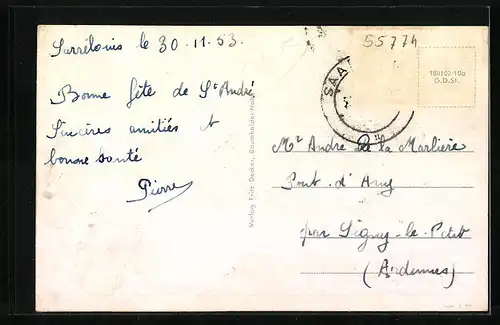 Sarrelouis le 30.11.53.
Bonne fête de St André
Sincères amitiés et
bonne santé
Pierre
Verlag Fritz Decker, Baumholder-Nahe
55774
SAAR
180102/10a
G.D.St.
Mr André de la Morlière
Pont d'Any
par Signy-le-Petit
(Ardennes)